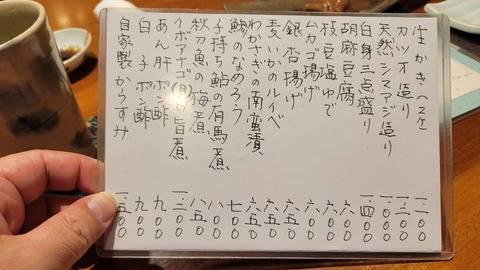 生かき(2ケ) 一.二〇〇
カツオ造り 一.三〇〇
天然シマアジ造り 一.〇〇〇
白身三点盛り 一.四〇〇
胡麻豆腐 六〇〇
枝豆塩ゆで 六〇〇
ムカゴ揚げ 六〇〇
銀杏揚げ 六五〇
麦いかのルイベ 六五〇
わかさぎの南蛮漬 六五〇
鯵のなめろう 七〇〇
子持ち鮎の有馬煮 八五〇
秋刀魚の梅煮 八〇〇
イボアナゴ の旨煮 一.三〇〇
あん肝ポン酢 九〇〇
白子ポン酢 九〇〇
自家製からすみ 一.五〇〇